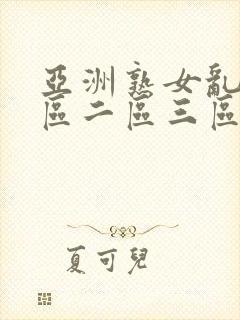 亞洲熟女亂
區二區三區
夏可兒